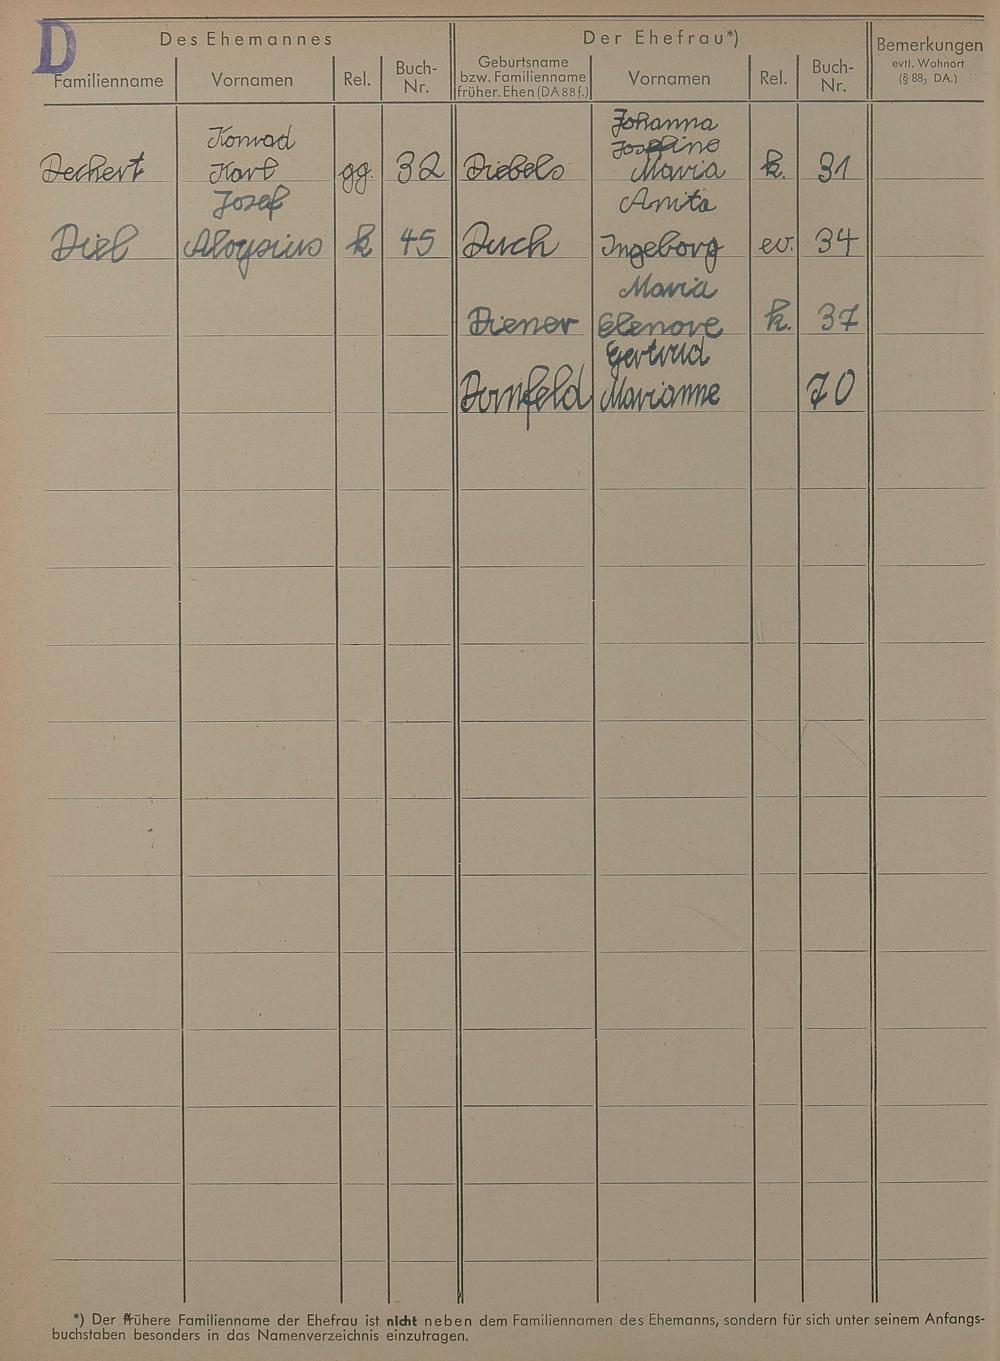 D
Des Ehemannes
Der Ehefrau*)
Familienname
Vornamen
Rel.
Buch-
Nr.
Geburtsname
bzw. Familienname
früher. Ehen (DA 88 f.)
Vornamen
Rel.
Buch-
Nr.
Bemerkungen
evtl. Wohnort
(§ 88₃ DA.)
Konrad
Johanna
Josefine
Dechert Karl gg. 32 Diebels Maria k. 31
Josef Anita
Diel Aloysius k 45 Duch Ingeborg ev. 34
Maria
Diener Elenore k. 37
Gertrud
Dornfeld Marianne 70
*) Der frühere Familienname der Ehefrau ist nicht neben dem Familiennamen des Ehemanns, sondern für sich unter seinem Anfangs-
buchstaben besonders in das Namenverzeichnis einzutragen.